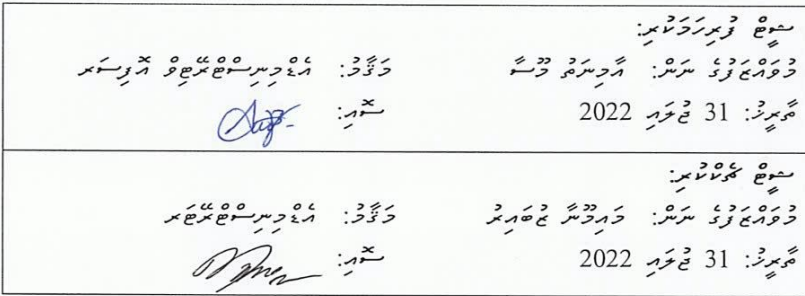 ޝީޓް ފުރިހަމަކުރި:
މުވައްޒަފުގެ ނަން: އާމިނަތު މޫސާ މަޤާމު: އެޑްމިނިސްޓްރޭޓިވް އޮފިސަރ
ތާރީޚު: 31 ޖުލައި 2022 ސޮއި:
ޝީޓް ޗެކްކުރި:
މުވައްޒަފުގެ ނަން: މައިމޫނާ ޒުބައިރު މަޤާމު: އެޑްމިނިސްޓްރޭޓަރ
ތާރީޚު: 31 ޖުލައި 2022 ސޮއި: